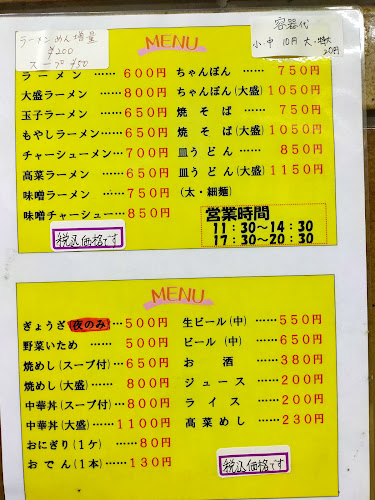 ラーメンめん増量
¥200
スープ ¥50
容器代
小・中 10円 大・特大
20円
MENU
ラーメン ……600円
大盛ラーメン ……800円
玉子ラーメン……650円
もやしラーメン……650円
チャーシューメン…700円
高菜ラーメン ……650円
味噌ラーメン ……750円
味噌チャーシュー…850円
税込価格です
ちゃんぽん ……750円
ちゃんぽん(大盛)1050円
焼そば ……750円
焼そば(大盛)1050円
皿うどん ……850円
皿うどん(大盛)1150円
(太・細麺)
営業時間
11:30~14:30
17:30~20:30
MENU
ぎょうざ 夜のみ …500円
野菜いため ……500円
焼めし(スープ付)…650円
焼めし(大盛) ……800円
中華丼(スープ付)…800円
中華丼(大盛)…1100円
おにぎり(1ケ) ……80円
おでん(1本)……130円
生ビール(中) ……550円
ビール (中) ……650円
お酒 ……380円
ジュース ……200円
ライス ……200円
高菜めし ……230円
税込価格です